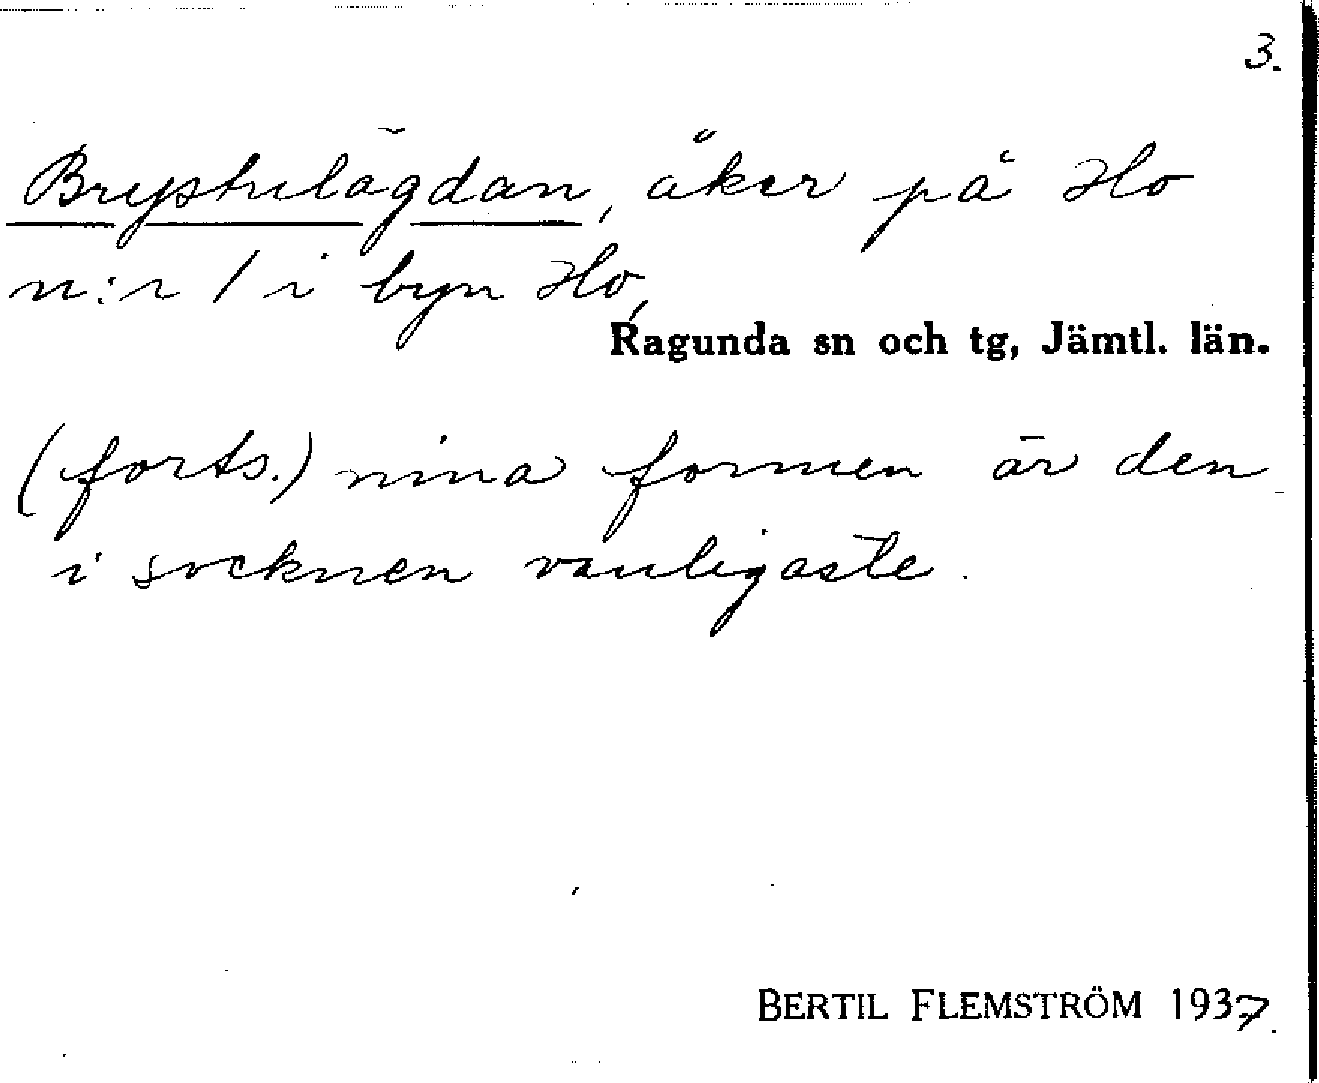 3.
Brystulägdan, åker på Ho
n:r 1 i byn Ho,
Ragunda sn och tg, Jämtl. län.
(forts.) nina formen är den
i socknen vanligaste.
BERTIL FLEMSTRÖM 1937.